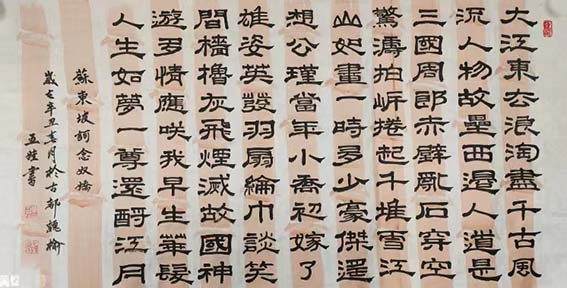 大江東去浪淘盡千古風
流人物故壘西邊人道是
三國周郎赤壁亂石穿空
驚濤拍岸捲起千堆雪江
山如畫一時多少豪傑遥
想公瑾當年小喬初嫁了
雄姿英發羽扇綸巾談笑
間檣櫓灰飛煙滅故國神
游多情應咲我早生華髮
人生如夢一尊還酹江月
蘇東坡詞念奴嬌
歲在辛丑春月於古都魏榆
書